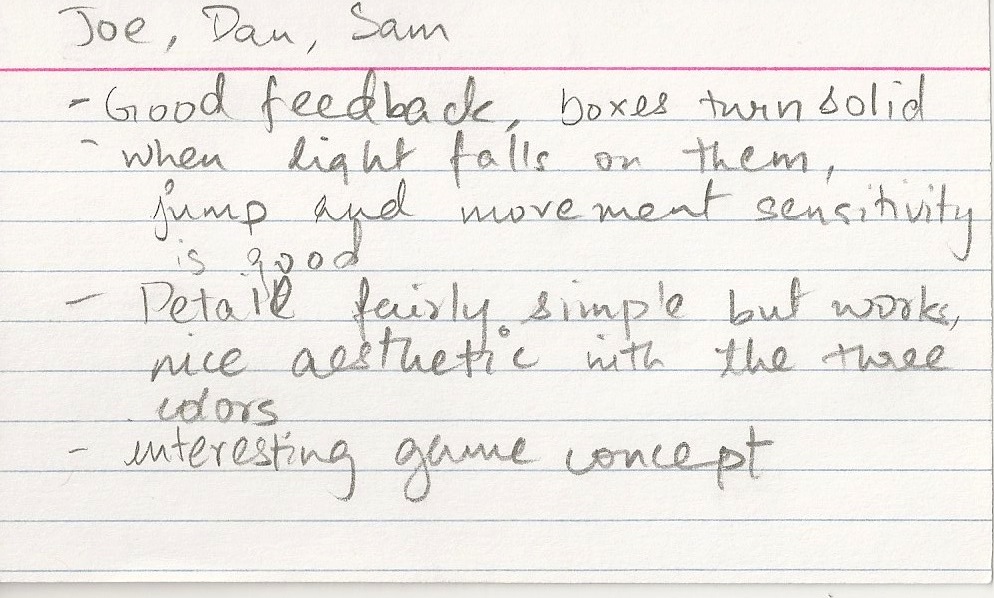 Joe, Dan, Sam
- Good feedback, boxes turn solid
- when light falls on them,
jump and movement sensitivity
is good
- Detail fairly simple but works,
nice aesthetic with the three
colors
- interesting game concept